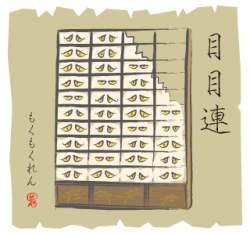 目目連
もくもくれん